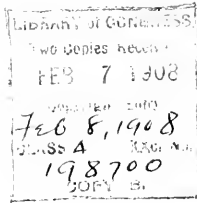 LIBRARY of CONGRESS
Two Copies Receiv
FEB 7 1908
Feb 8, 1908
CLASS A XXc. No.
198700
COPY B.